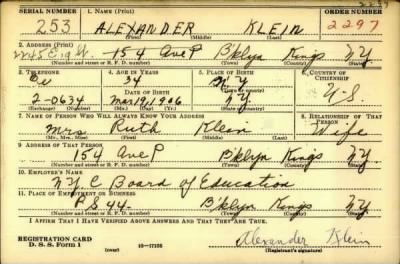 SERIAL NUMBER 1. NAME (Print) ORDER NUMBER
253 ALEXANDER KLEIN 2297
(First) (Middle) (Last)
2. ADDRESS (Print)
154 Ave P B'klyn Kings N.Y.
(Number and street or R. F. D. number) (Town) (County) (State)
3. TELEPHONE 4. AGE IN YEARS 5. PLACE OF BIRTH 6. COUNTRY OF CITIZENSHIP
34 N.Y.
DATE OF BIRTH (Town or county)
2-0634 Mar 19, 1906 N.Y. U-S.
(Exchange) (No.) (Mo.) (Day) (Yr.) (State or country)
7. NAME OF PERSON WHO WILL ALWAYS KNOW YOUR ADDRESS 8. RELATIONSHIP OF THAT PERSON
Mrs Ruth Klein Wife
(Mr., Mrs., Miss) (First) (Middle) (Last)
9. ADDRESS OF THAT PERSON
154 Ave P B'klyn Kings N.Y.
(Number and street or R. F. D. number) (Town) (County) (State)
10. EMPLOYER'S NAME
N.Y.C Board of Education
11. PLACE OF EMPLOYMENT OR BUSINESS
P S 44- B'klyn Kings N.Y.
(Number and street or R. F. D. number) (Town) (County) (State)
I AFFIRM THAT I HAVE VERIFIED ABOVE ANSWERS AND THAT THEY ARE TRUE.
REGISTRATION CARD
D. S. S. Form 1 (over) Alexander Klein
(Registrant's signature)